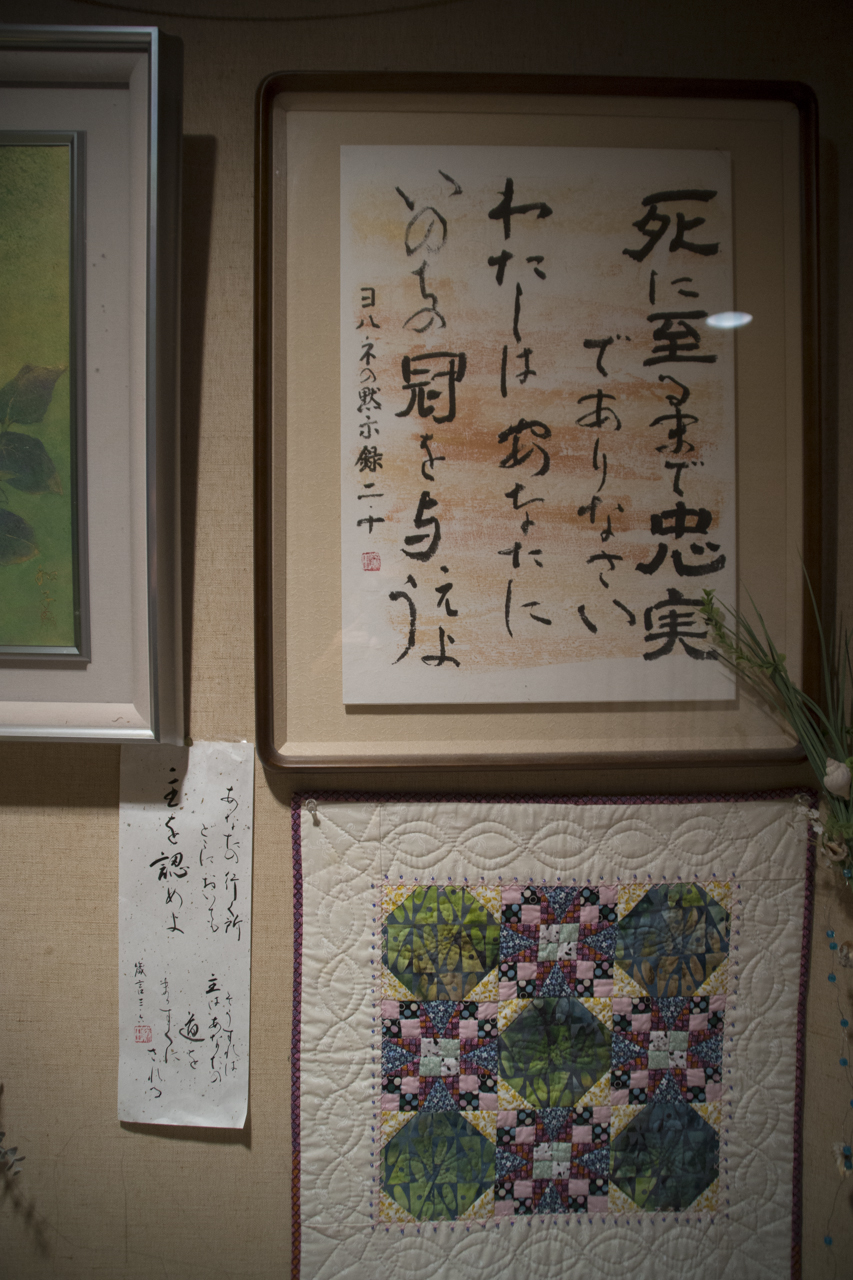 死に至るまで忠実
でありなさい
わたしは あなたに
いのちの冠を与えよう
ヨハネの黙示録 二・十
あなたの行く所
どこにおいても
主を認めよ
そうすれば
主はあなたの
道を
まっすぐに
される
箴言三・六